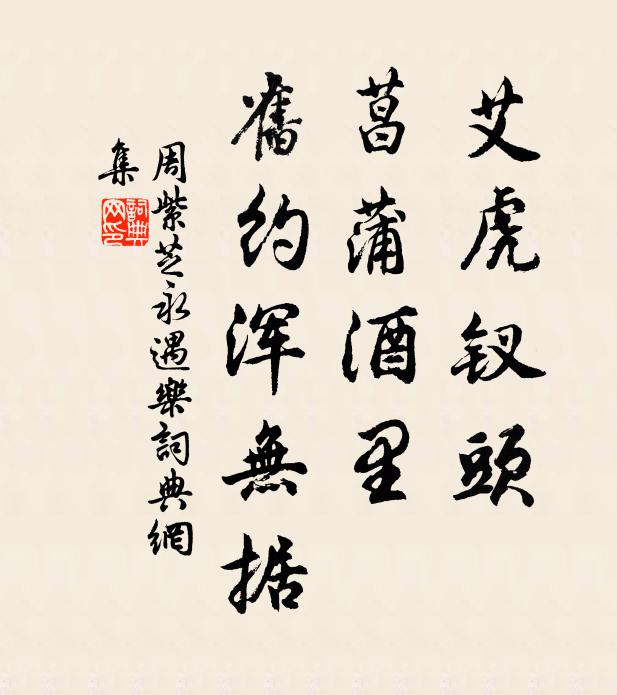 艾虎钗頭
菖蒲酒里
舊約浑無据
周紫芝永遇樂詞典網
集
詞典
网印